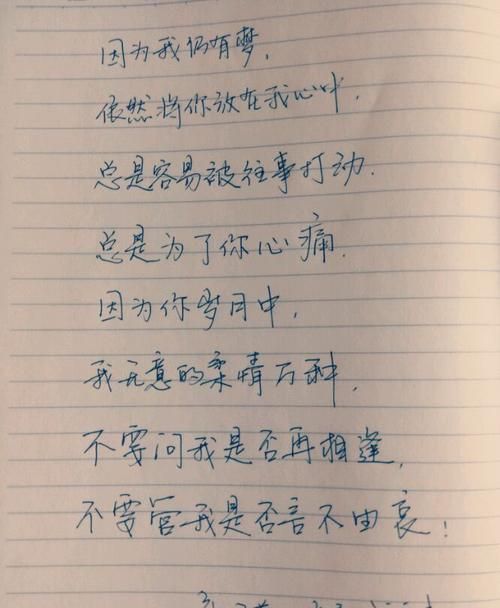 因为我仍有梦,
依然将你放在我心中,
总是容易被往事打动.
总是为了你心痛.
因为你岁月中,
我无意的柔情万种,
不要问我是否再相逢,
不要管我是否言不由衷!